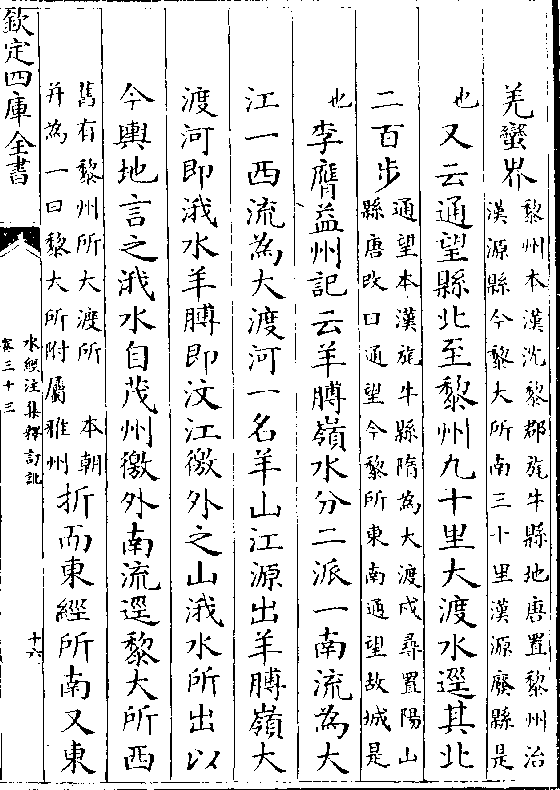 羌蠻界
黎州本漢沈黎郡旄牛縣地唐置黎州治
漢源縣今黎大所南三十里漢源廢縣是
也又云通望縣北至黎州九十里大渡水逕其北
二百步
通望本漢旄牛縣隋為大渡戍尋置陽山
縣唐改曰通望今黎所東南通望故城是
也李膺益州記云羊膊嶺水分二派一南流為大
江一西流為大渡河一名羊山江源出羊膊嶺大
渡河即涐水羊膊即汶江徼外之山涐水所出以
今輿地言之涐水自茂州徼外南流逕黎大所西
舊有黎州所大渡所 本朝
并為一曰黎大所附屬雅州
折而東經所南又東
欽定四庫全書
水經注集釋訂訛
卷三十三
十六